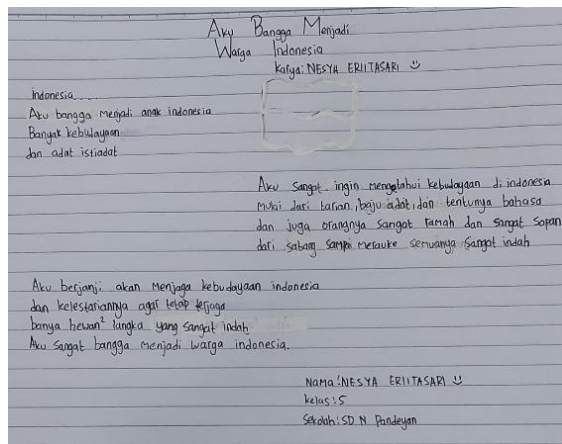 Aku Bangga Menjadi
Warga Indonesia
Karya: NESYA ERIITASARI
indonesia.....
Aku bangga menjadi anak indonesia
Banyak kebudayaan
dan adat istiadat
Aku sangat ingin mengetahui kebudayaan di indonesia
mulai dari tarian, baju adat, dan tentunya bahasa
dan juga orangnya sangat ramah dan sangat sopan
dari sabang sampai merauke semuanya sangat indah
Aku berjanji akan menjaga kebudayaan indonesia
dan kelestariannya agar tetap terjaga
banya hewan² langka yang sangat indah
Aku sangat bangga menjadi warga indonesia.
Nama: NESYA ERIITASARI
kelas: 5
Sekolah: SD N Pandeyan